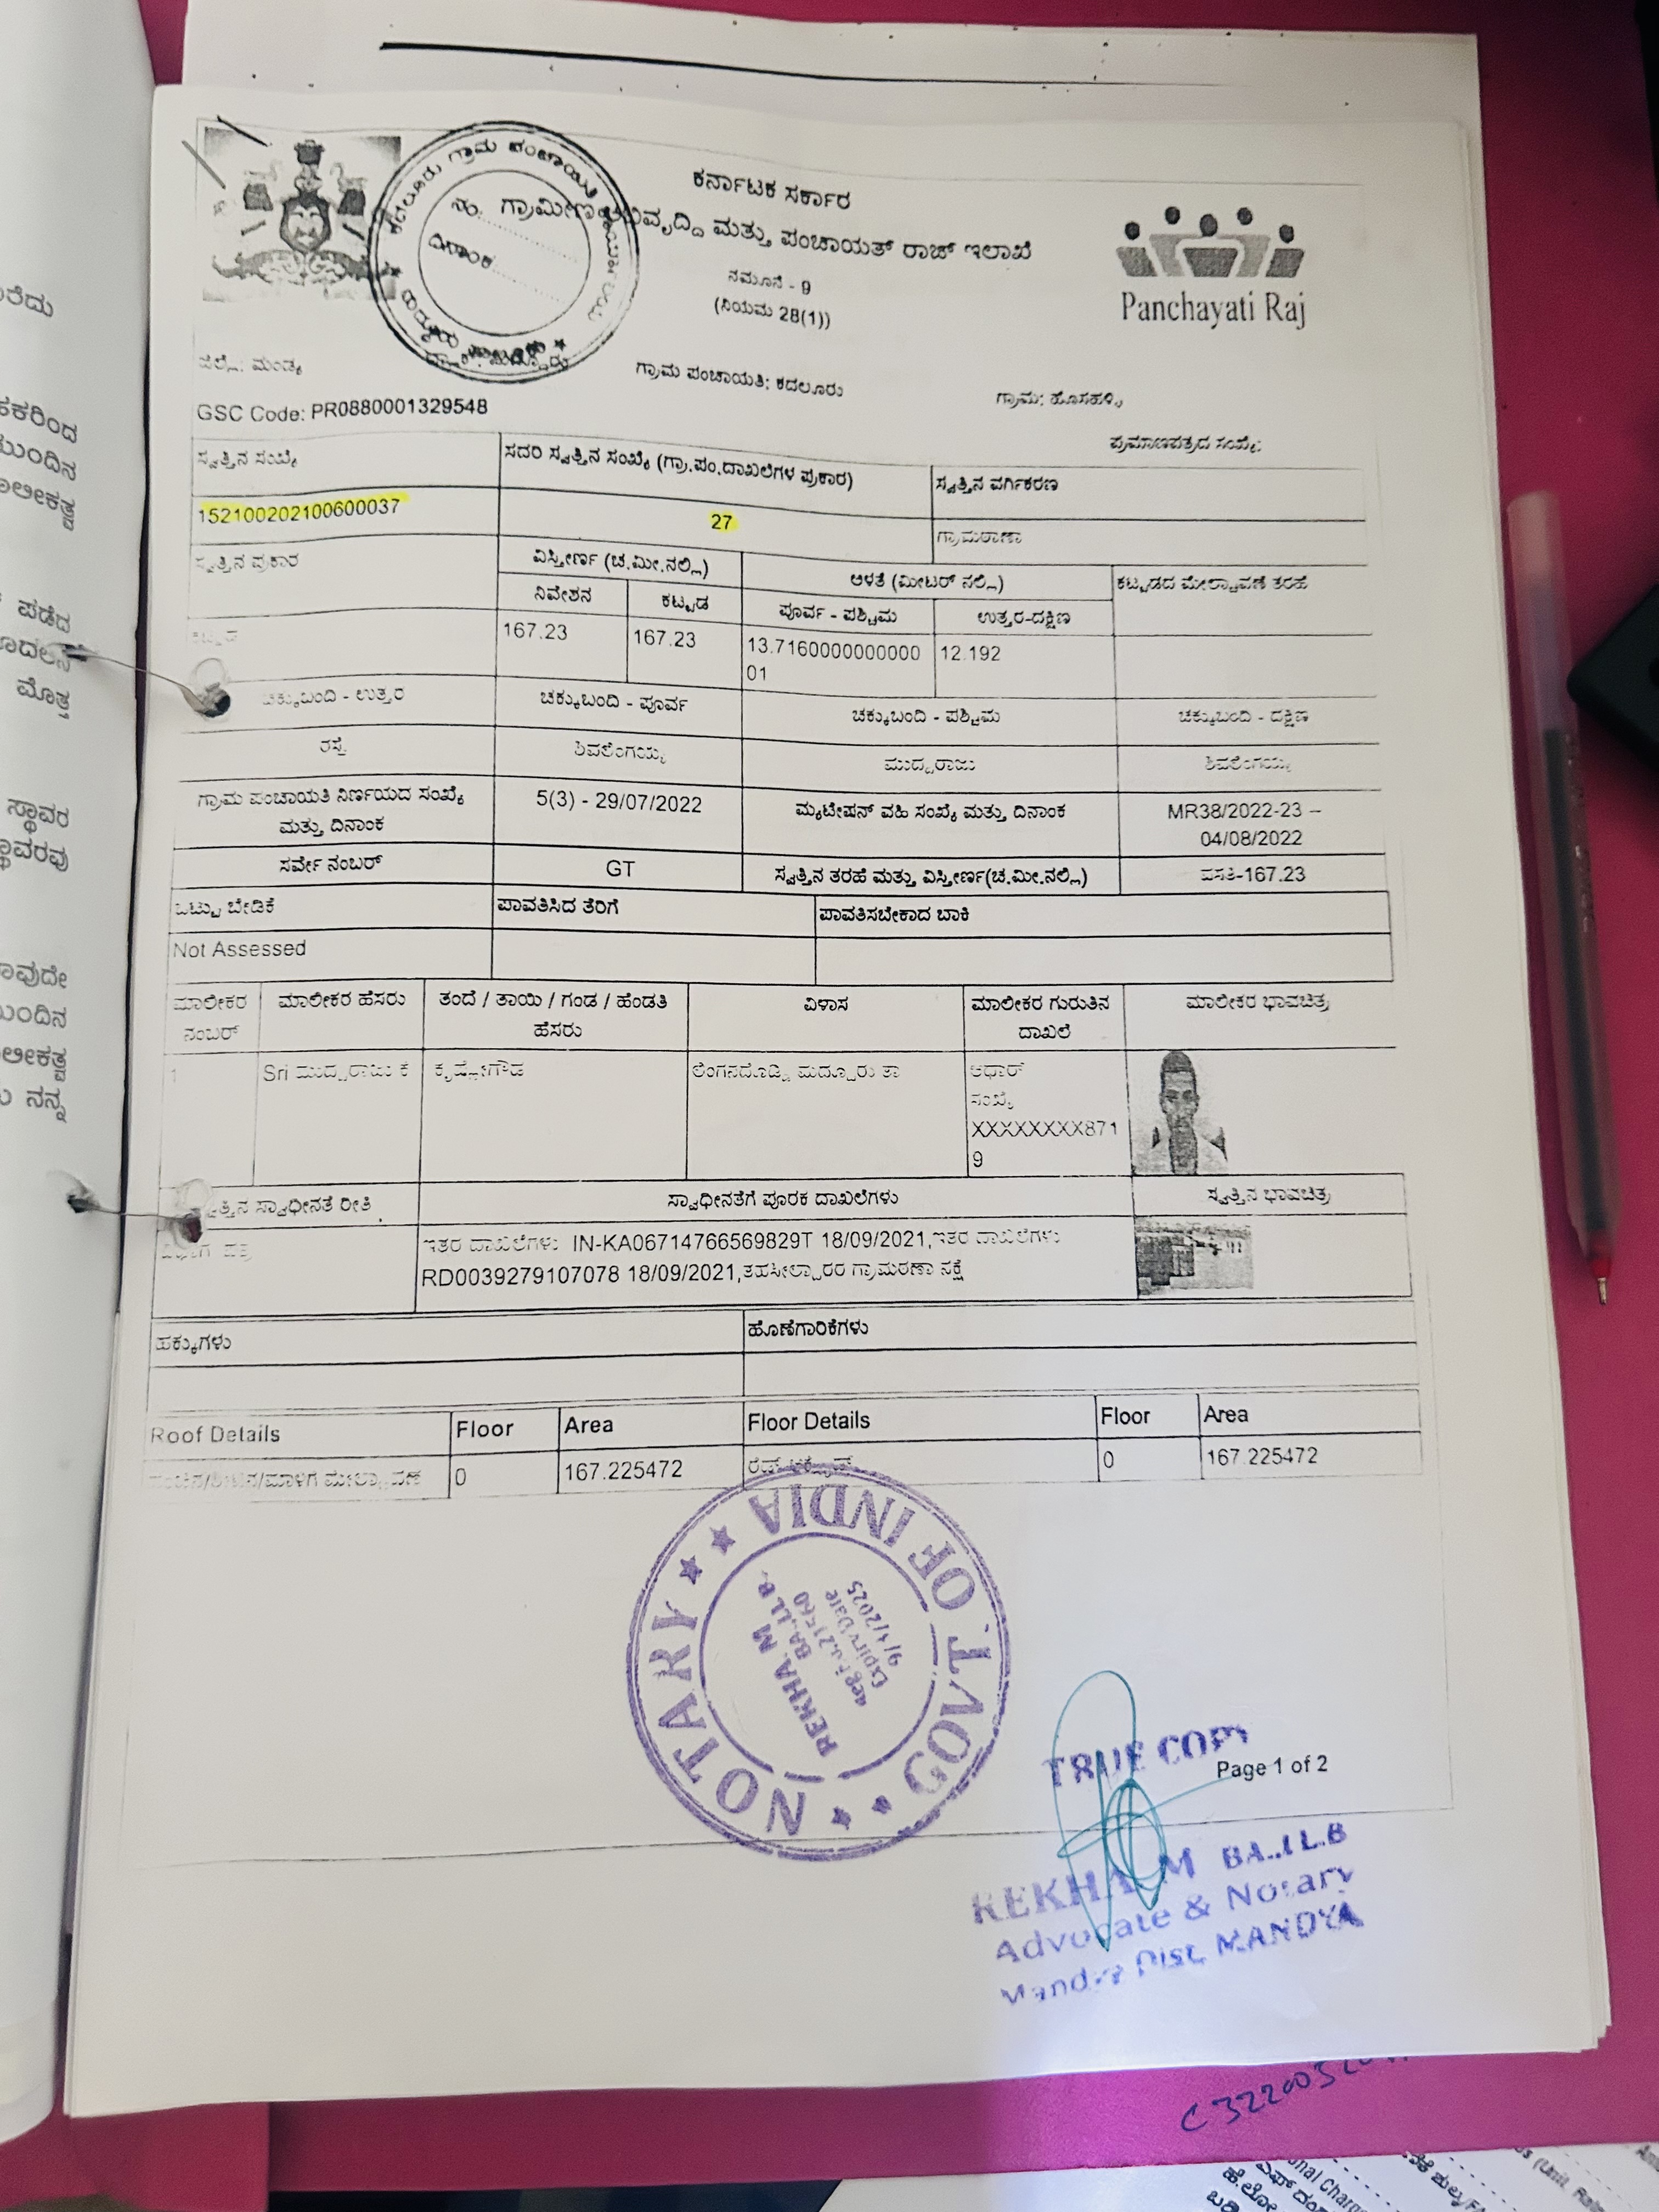 ಕರ್ನಾಟಕ ಸರ್ಕಾರ
ಗ್ರಾಮೀಣಾಭಿವೃದ್ದಿ ಮತ್ತು ಪಂಚಾಯತ್ ರಾಜ್ ಇಲಾಖೆ
ನಮೂನೆ - 9
(ನಿಯಮ 28(1))
Panchayati Raj
ನಂ.
ದಿನಾಂಕ
ಜಿಲ್ಲೆ: ಮಂಡ್ಯ
ಗ್ರಾಮ ಪಂಚಾಯತಿ: ಕದಲೂರು
ಗ್ರಾಮ: ಹೊಸಹಳ್ಳಿ
GSC Code: PR0880001329548
ಪ್ರಮಾಣಪತ್ರದ ಸಂಖ್ಯೆ:
ಸ್ವತ್ತಿನ ಸಂಖ್ಯೆ
ಸದರಿ ಸ್ವತ್ತಿನ ಸಂಖ್ಯೆ (ಗ್ರಾ.ಪಂ.ದಾಖಲೆಗಳ ಪ್ರಕಾರ)
ಸ್ವತ್ತಿನ ವರ್ಗಿಕರಣ
152100202100600037
27
ಗ್ರಾಮಠಾಣಾ
ಸ್ವತ್ತಿನ ಪ್ರಕಾರ
ವಿಸ್ತೀರ್ಣ (ಚ.ಮೀ.ನಲ್ಲಿ)
ಅಳತೆ (ಮೀಟರ್ ನಲ್ಲಿ)
ಕಟ್ಟಡದ ಮೇಲ್ಚಾವಣಿ ತರಹೆ
ನಿವೇಶನ
ಕಟ್ಟಡ
ಪೂರ್ವ - ಪಶ್ಚಿಮ
ಉತ್ತರ-ದಕ್ಷಿಣ
ಕಟ್ಟಡ
167.23
167.23
13.7160000000000
01
12.192
ಚಕ್ಕುಬಂದಿ - ಉತ್ತರ
ಚಕ್ಕುಬಂದಿ - ಪೂರ್ವ
ಚಕ್ಕುಬಂದಿ - ಪಶ್ಚಿಮ
ಚಕ್ಕುಬಂದಿ - ದಕ್ಷಿಣ
ರಸ್ತೆ
ಶಿವಲಿಂಗಯ್ಯ
ಮುದ್ದರಾಜು
ಶಿವಲಿಂಗಯ್ಯ
ಗ್ರಾಮ ಪಂಚಾಯತಿ ನಿರ್ಣಯದ ಸಂಖ್ಯೆ
ಮತ್ತು ದಿನಾಂಕ
5(3) - 29/07/2022
ಮ್ಯುಟೇಷನ್ ವಹಿ ಸಂಖ್ಯೆ ಮತ್ತು ದಿನಾಂಕ
MR38/2022-23 –
04/08/2022
ಸರ್ವೇ ನಂಬರ್
GT
ಸ್ವತ್ತಿನ ತರಹೆ ಮತ್ತು ವಿಸ್ತೀರ್ಣ(ಚ.ಮೀ.ನಲ್ಲಿ)
ವಸತಿ-167.23
ಒಟ್ಟು ಬೇಡಿಕೆ
ಪಾವತಿಸಿದ ತೆರಿಗೆ
ಪಾವತಿಸಬೇಕಾದ ಬಾಕಿ
Not Assessed
ಮಾಲೀಕರ
ನಂಬರ್
ಮಾಲೀಕರ ಹೆಸರು
ತಂದೆ / ತಾಯಿ / ಗಂಡ / ಹೆಂಡತಿ
ಹೆಸರು
ವಿಳಾಸ
ಮಾಲೀಕರ ಗುರುತಿನ
ದಾಖಲೆ
ಮಾಲೀಕರ ಭಾವಚಿತ್ರ
1
Sri ಮುದ್ದರಾಜು ಕೆ
ಕೃಷ್ಣೇಗೌಡ
ಲಿಂಗನದೊಡ್ಡಿ ಮದ್ದೂರು ತಾ
ಆಧಾರ್
ಸಂಖ್ಯೆ
XXXXXXXX871
9
ಸ್ವತ್ತಿನ ಸ್ವಾಧೀನತೆ ರೀತಿ
ಸ್ವಾಧೀನತೆಗೆ ಪೂರಕ ದಾಖಲೆಗಳು
ಸ್ವತ್ತಿನ ಭಾವಚಿತ್ರ
ವಿಭಾಗ ಪತ್ರ
ಇತರ ದಾಖಲೆಗಳು IN-KA06714766569829T 18/09/2021,ಇತರ ದಾಖಲೆಗಳು
RD0039279107078 18/09/2021,ತಹಸೀಲ್ದಾರರ ಗ್ರಾಮಠಣಾ ನಕ್ಷೆ
ಹಕ್ಕುಗಳು
ಹೊಣೆಗಾರಿಕೆಗಳು
Roof Details
Floor
Area
Floor Details
Floor
Area
0
167.225472
ರೆಡ್ ಆಕ್ಸೈಡ್
0
167.225472
NOTARY
GOVT. OF INDIA
REKHA. M
BA.LLB
Expiry Date
9/1/2025
TRUE COPY
Page 1 of 2
REKHA. M BA.,LL.B
Advocate & Notary
Mandya Dist, MANDYA